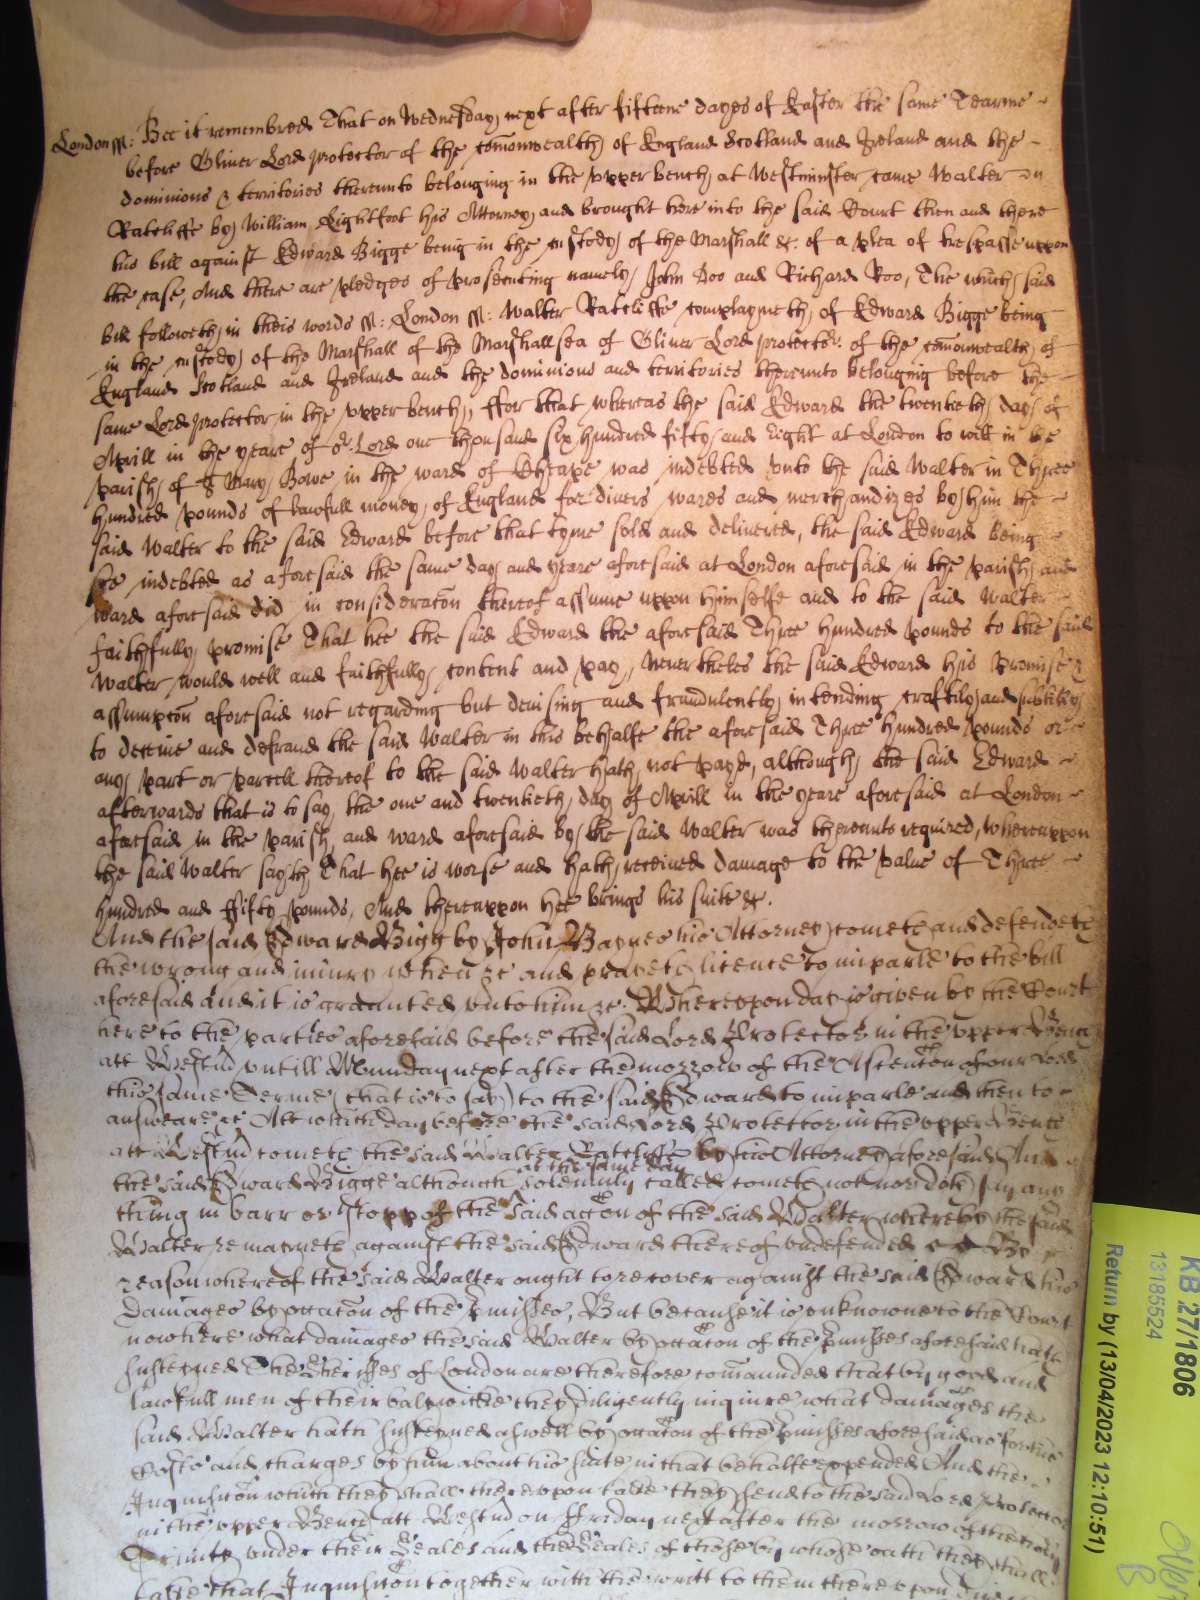 London ss: Bee it remembred That on Wednesday next after fifteene dayes of Easter the same Tearme
before Oliver Lord protector of the comonwealth of England Scotland and Ireland and the
dominions & territories thereunto belonging in the upper bench at Westminster came Walter
Ratcliffe by William Lightfoot his Attorney and brought here into the said Court then and there
his bill against Edward Bigge being in the custody of the Marshall &c. of a plea of trespasse uppon
the case, And there are pledges of prosecuting namely John Doo and Richard Roo, The which said
bill followeth in theis words ss: London ss: Walter Ratcliffe complayneth of Edward Bigge being
in the custody of the Marshall of the Marshallsea of Oliver Lord protector of the comonwealth of
England Scotland and Ireland and the dominions and territories thereunto belonging before the
same Lord protector in the upper bench, ffor that whereas the said Edward the twentieth day of
Aprill in the yeare of or Lord one thousand six hundred fifty and Eight at London to witt in the
parish of St Mary Bowe in the ward of Cheape was indebted unto the said Walter in Three
hundred pounds of lawfull money of England for divers wares and merchandizes by him the
said Walter to the said Edward before that tyme sold and delivered, the said Edward being
soe indebted as aforesaid the same day and yeare aforesaid at London aforesaid in the parish and
ward aforesaid did in consideracon thereof assume uppon himselfe and to the said Walter
faithfully promise That hee the said Edward the aforesaid Three hundred pounds to the said
Walter would well and faithfully content and pay, Neverthelès the said Edward his promise &
assumpcon aforesaid not regarding but devising and fraudulently intending craftily and subtilly
to deceive and defraud the said Walter in this behalfe the aforesaid Three hundred pounds or
any part or parcell thereof to the said Walter hath not payd, although the said Edward
afterwards that is to say the one and twentieth day of Aprill in the yeare aforesaid at London
aforesaid in the parish and ward aforesaid by the said Walter was thereunto required, whereuppon
the said Walter sayth That hee is worse and hath received damage to the value of Three
hundred and ffifty pounds, And thereuppon hee brings his suite &c.
And the said Edward Bigg by John Baynes his Attorney cometh and defendeth
the wrong and iniury when &c and prayeth licence to imparle to the bill
aforesaid And it is graunted unto him &c. Whereupon day is given by the Court
here to the parties aforesaid before the said Lord Protector in the upper Bench
att Westm untill Munday next after the morrow of the Ascencon of our Lord
this same Terme (that is to say) to the said Edward to imparle and then to
answeare &c Att which day before the said Lord Protector in the upper Bench
att Westm cometh the said Walter Ratcliffe by his Attorney aforesaid And
the said Edward Bigge although at the same day solemnly called cometh not nor doth say any
thing in barr or stopp of the said accon of the said Walter whereby the said
Walter remayneth against the said Edward thereof undefended By
reason whereof the said Walter ought to recover against the said Edward his
damages by occacon of the pmisses, But because it is unknowne to the Court
now here what damages the said Walter by occacon of the pmisses aforesaid hath
susteyned The Sheriffes of London are therefore comaunded that by good and
lawfull men of their balywicke they diligently inquire what damages the
said Walter hath susteyned aswell by occacon of the pmisses aforesaid as for his
Costs and charges by him about his suite in that behalfe expended And the
Inquisicon which they shall thereupon take they send to the said Lord Protector
in the upper Bench att Westm on Friday next after the morrow of the holy
Trinity under their Seales and the Seales of those by whose oath they shall
take that Inquisicon together with the writt to them thereupon
KB 27/1806
13185524
Return by (13/04/2023 12:10:51)